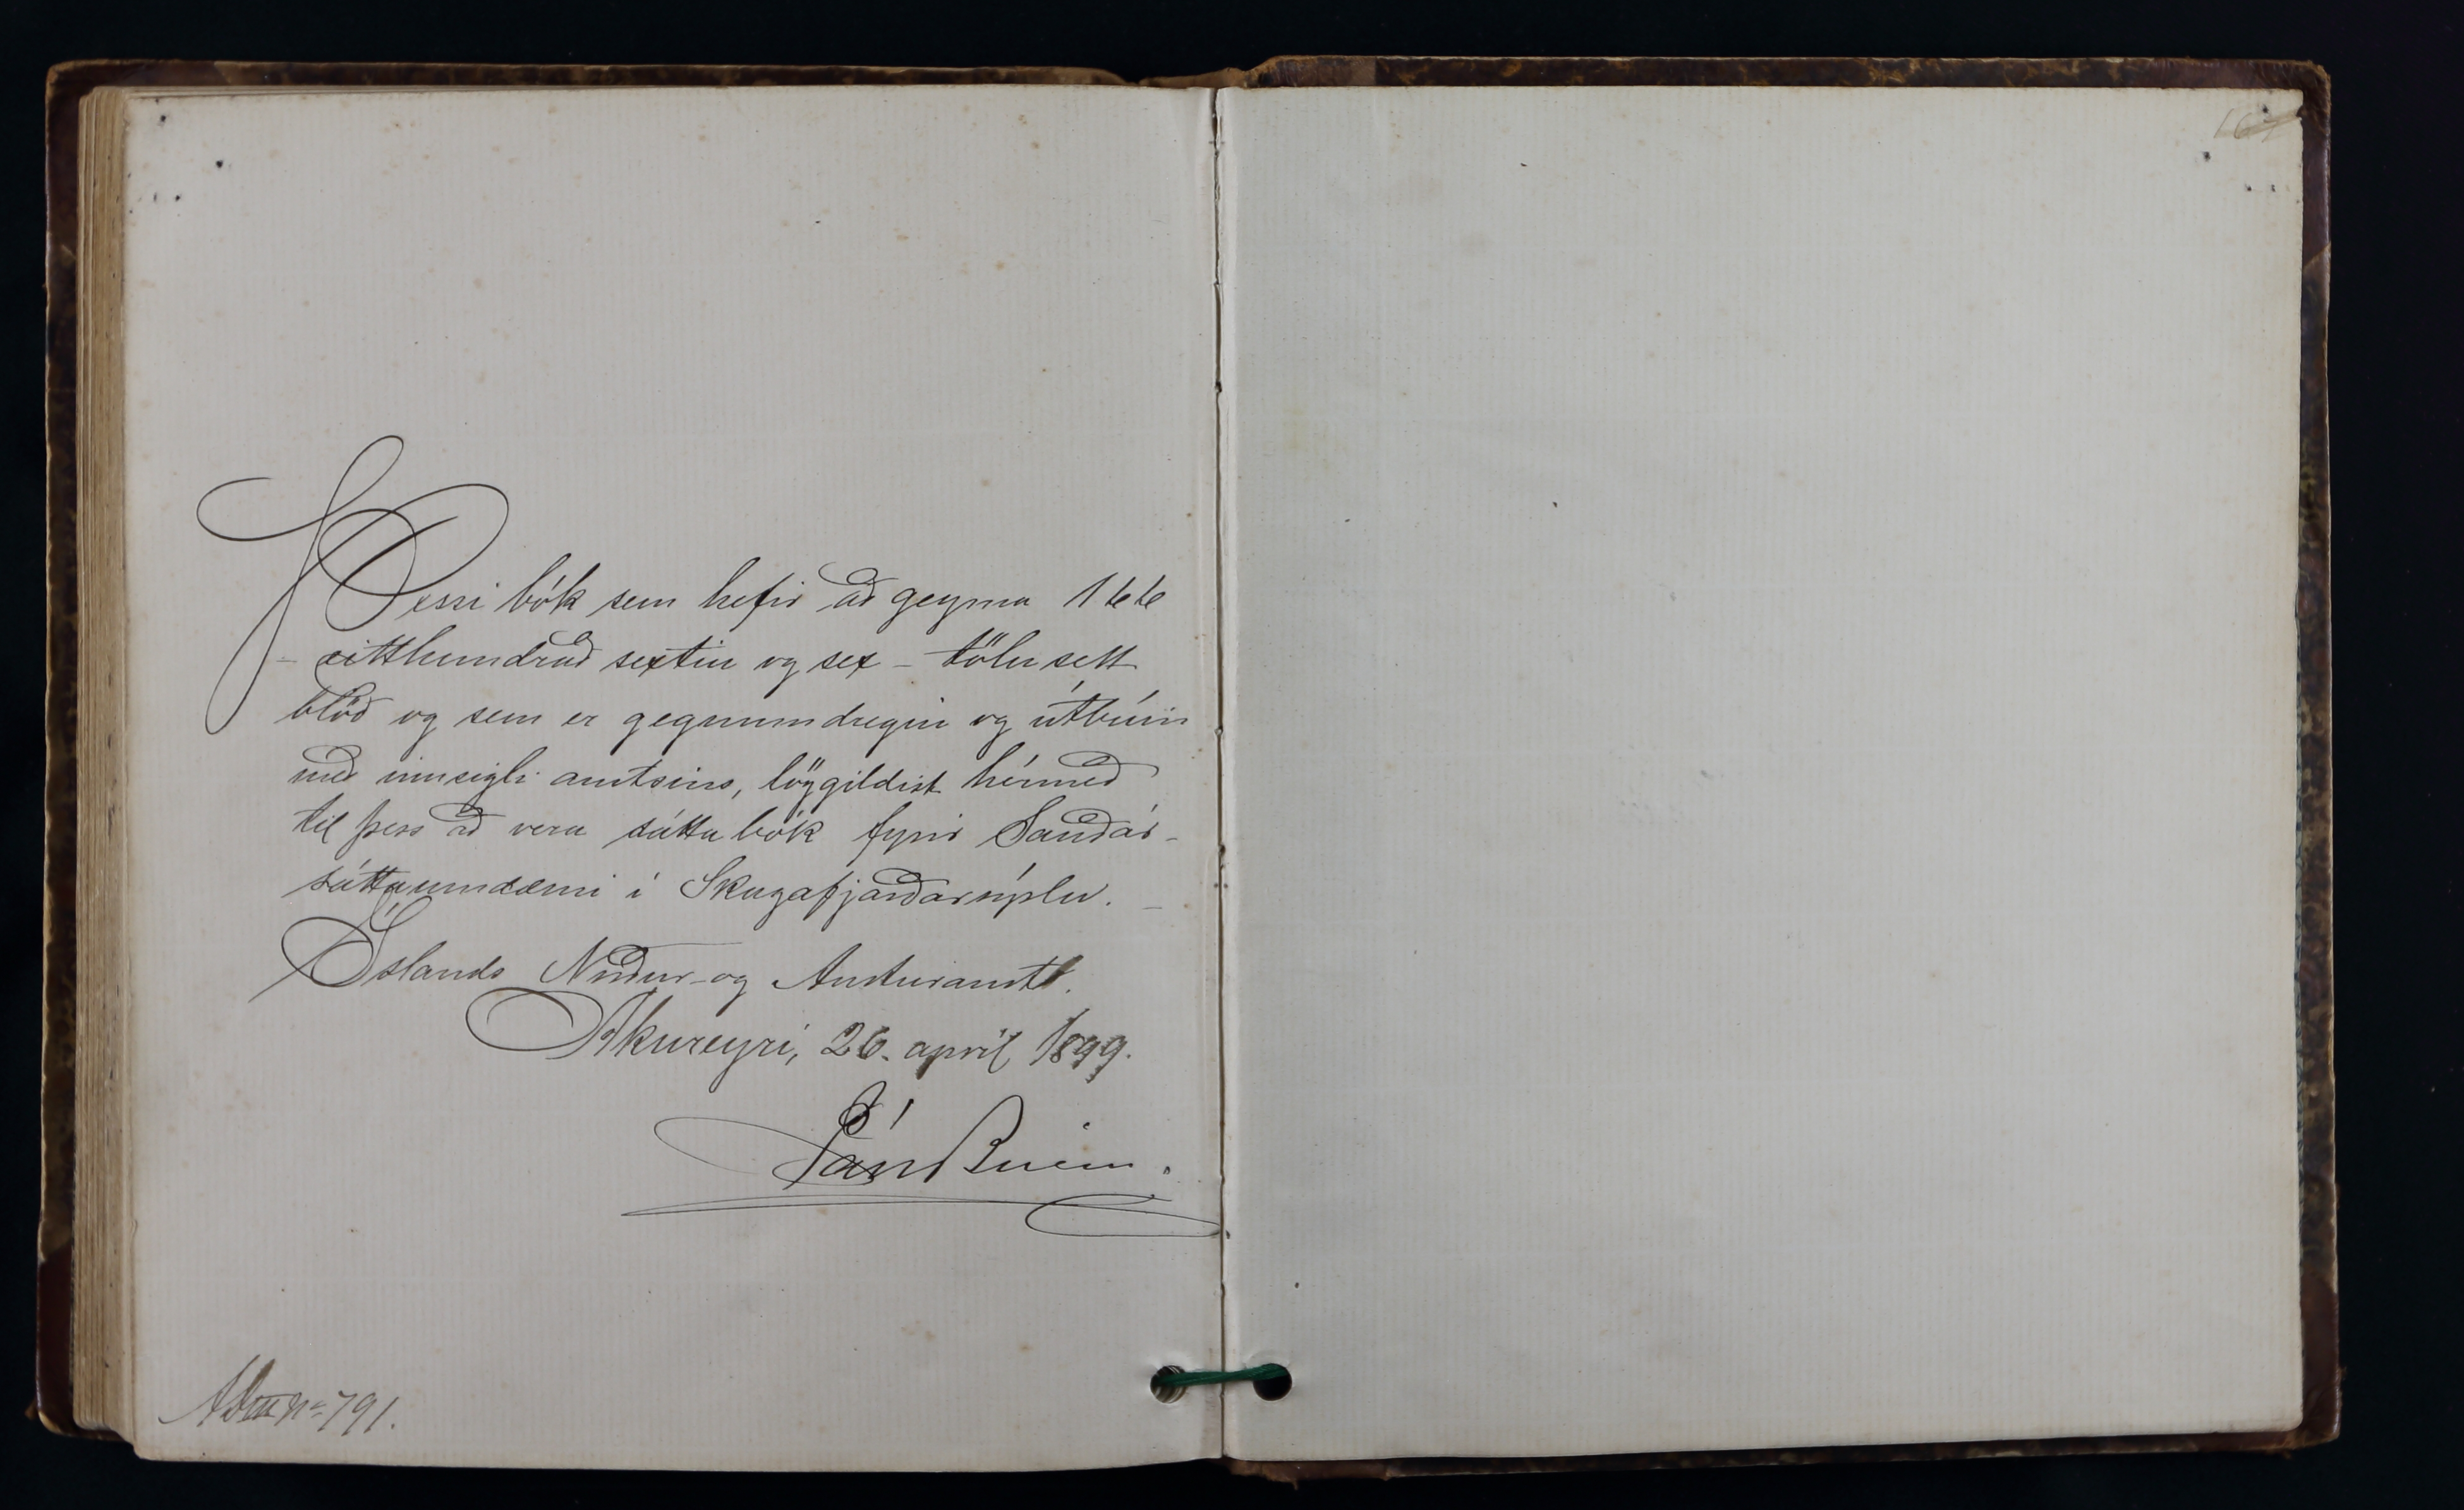 Þessi bók sem hefir að geyma 166
- eitthundrað sextiu og sex - tölusett
blöð og sem er gegnumdregin og útbúin
með innsigli amtsins, löggildist hérmeð
til þess að vera sáttabók fyrir Sauðár-
sáttaumdæmi í Skagafjarðarsýslu. -
Íslands Norður- og Austuramt.
Akureyri, 26. april 1899.
Páll Briem.
No 791.
167